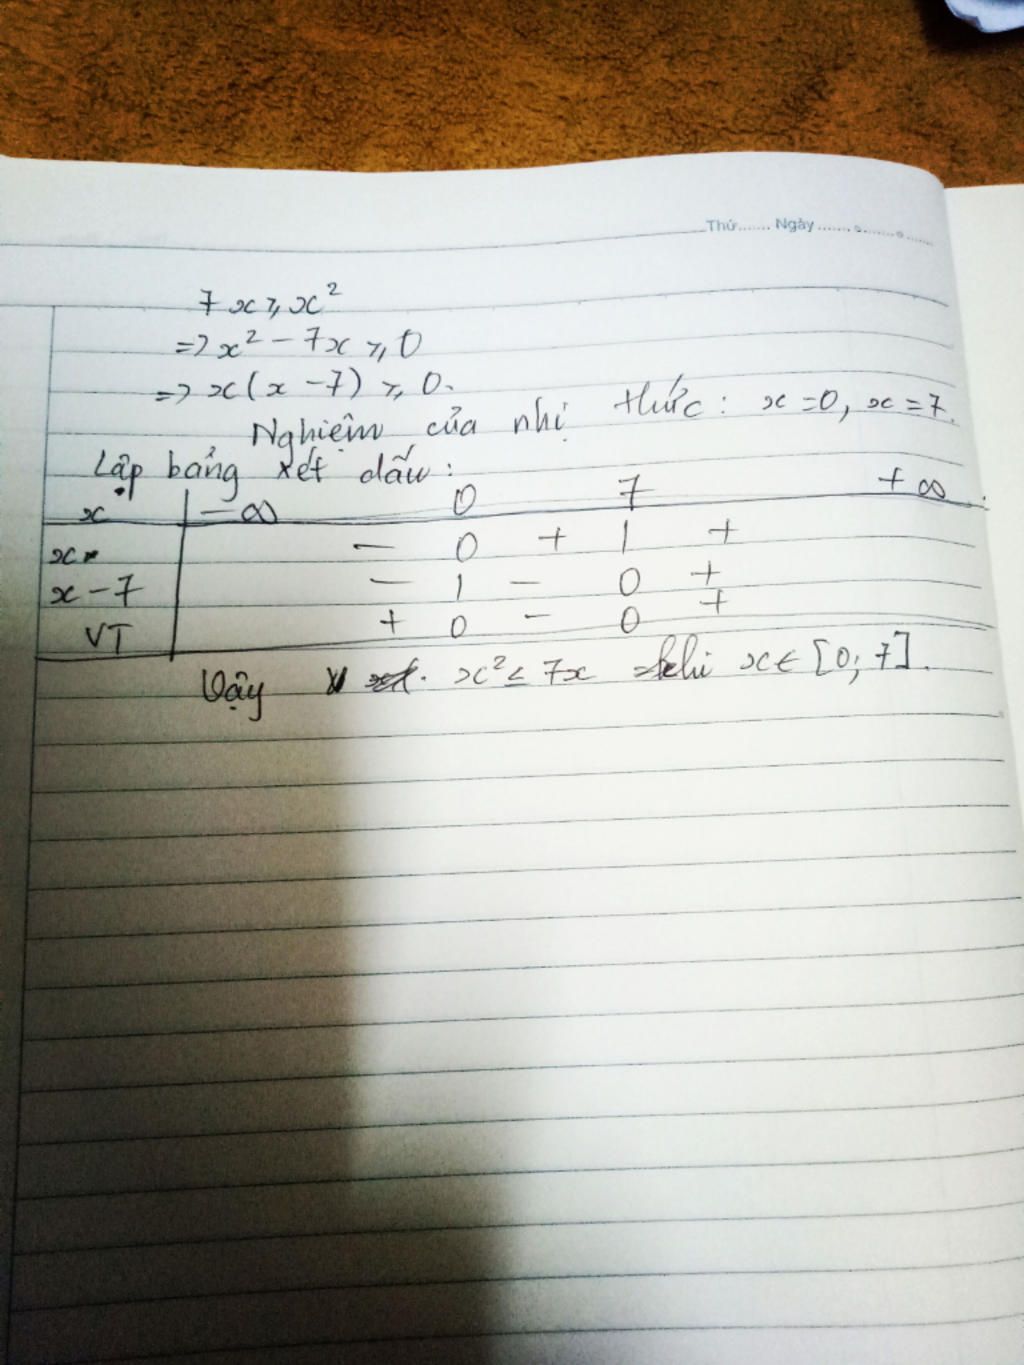 Thứ....... Ngày ....... ........ .......
7x ⩾ x²
=> x² - 7x ⩾ 0
=> x(x - 7) ⩾ 0.
Nghiệm của nhị thức: x = 0, x = 7.
Lập bảng xét dấu:
x | -∞ 0 7 +∞
x - 0 + | +
x - 7 - | - 0 +
VT + 0 - 0 +
Vậy x² ≤ 7x khi x ∈ [0; 7].